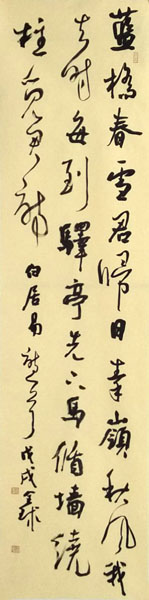 藍橋春雪君歸日秦嶺秋風我
去時每到驛亭先下馬循墙繞
柱覓君詩 白居易 戊戌